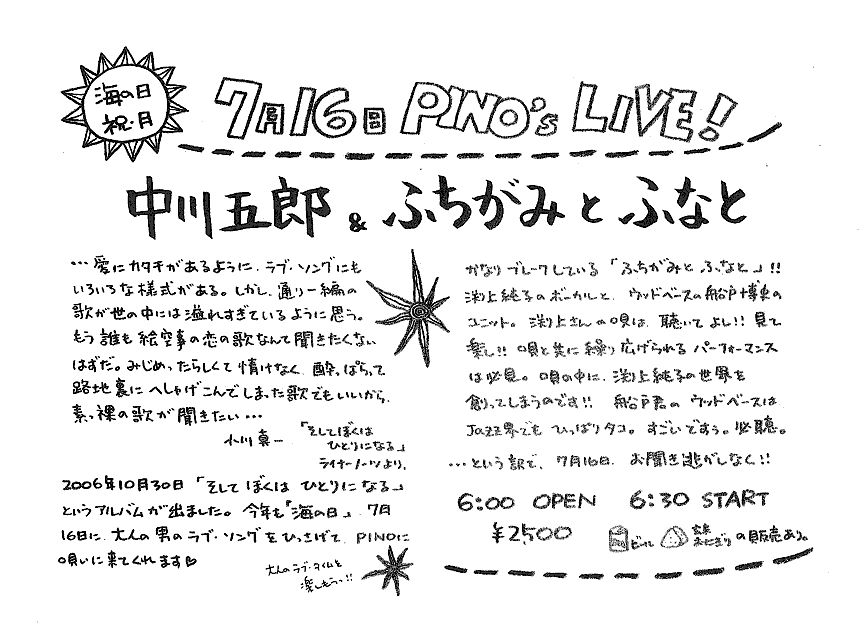 海の日
祝・月
7月16日 PINO's LIVE!
中川五郎 & ふちがみとふなと
…愛にカタチがあるように、ラブ・ソングにも
いろいろな様式がある。しかし、通り一編の
歌が世の中には溢れすぎているように思う。
もう誰も絵空事の恋の歌なんて聞きたくない
はずだ。みじめったらしくて情けなく、酔っぱらって
路地裏にへしゃげこんでしまった歌でもいいから、
素っ裸の歌が聞きたい…
小川真一 「そしてぼくは
ひとりになる」
ライナーノーツより。
2006年10月30日「そして ぼくは ひとりに なる」
というアルバムが出ました。今年も「海の日」、7月
16日に、大人の男のラブ・ソングをひっさげて、PINOに
唄いに来てくれます♡
大人のラブ・タイムを
楽しもうっ!!
かなりブレークしている「ふちがみと ふなと」!!
渕上純子のボーカルと、ウッドベースの船戸博史の
ユニット。渕上さんの唄は、聴いてよし!! 見て
楽し!! 唄と共に繰り広げられるパーフォーマンス
は必見。唄の中に、渕上純子の世界を
創ってしまうのです!! 船戸君の ウッドベースは
JAZZ界でも ひっぱりタコ。すごいですぅ。必聴。
…という訳で、7月16日、お聞き逃がしなく!!
6:00 OPEN 6:30 START
¥2,500 ビール 玄米おにぎり の販売あり。